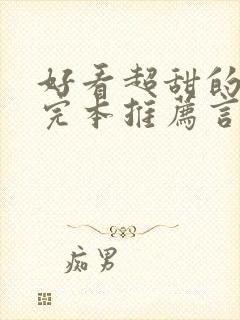 好看超甜的
完本推薦言
痴男